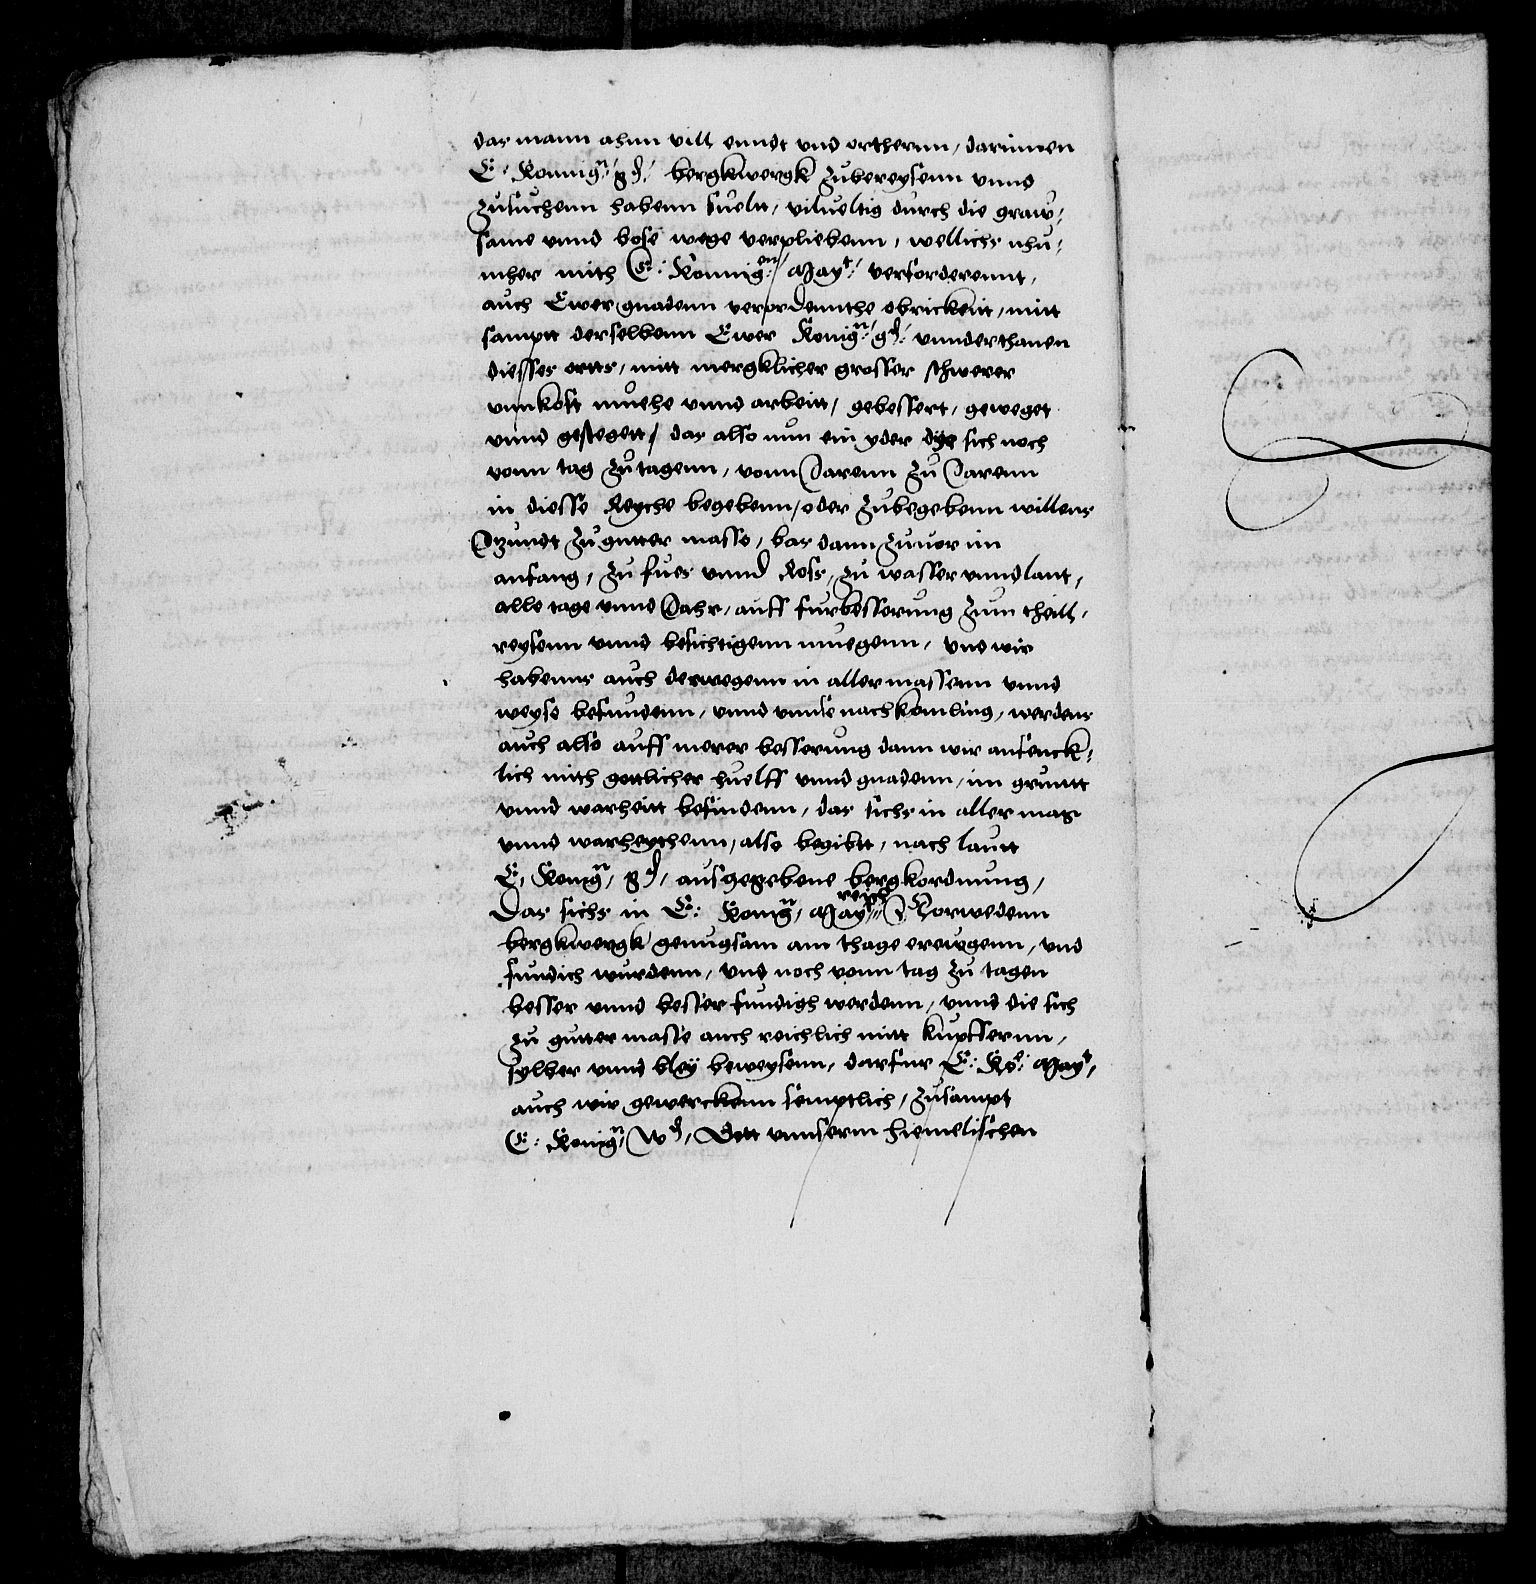 das mann ahnn vill enndt vnd orthernn, darinnen
E. Konnig.n g.d. bergkwergk zubereysenn vnnd
zusuchenn habenn suelt, vilueltig durch die graw,
same vnnd bose wege verpliebenn, wellichs nhu,
mher mith E: Konnig.en May.t verforderennt,
auch Ewer gnadenn verordennthe obrickeitt, mitt
samptt derselbenn Ewer Konig.n g.d. vnnderthanen
diesses ortts, mitt mergklicher grosser schwerer
vnnkost muehe vnnd arbeitt, gebessert, geweget
vnnd gestegett, das also nun ein yder dye sich noch
vonn tag zu tagenn, vonn Jarenn zu Jarenn
in diesse Reyche begebenn, oder zubegebenn willens
Itzundt zu gutter masse, bas dann zuuor im
anfang, zu fues vnnd Ross, zu wasser vnnd lant,
alle tage vnnd Jahr, auff furbesserung zum theill,
reysenn vnnd besichtigenn muegenn, vnd wir
habenns auch derwegenn in aller massenn vnnd
weyse befundenn, vnnd vnnse nachkomling, werdens
auch also auff merer besserung dann wir anfenck,
lich mith gottlicher huelff vnnd gnadenn, im gruntt
vnnd warheitt befindenn, das sichs in aller mas
vnnd warheythenn, also begibtt, nach lautt
E, Konig.n, g.d, ausgegebene bergkordnung,
Das sichs in E: Konig.n, May.t reych Norwedenn
bergkwergk genugsam am thage ereugenn, vnd
fundich wurdenn, vnd noch vonn tag zu tagen
besser vnnd besser fundigh werdenn, vnnd die sich
zu gutter masse auch reichlich mitt kupffernn,
sylber vnnd bley beweysenn, darfur E: Ko.e May.t,
auch wir gewerckenn semptlich, zusampt
E: Konig.n, W.d, Gott vnnserm hiemelischen